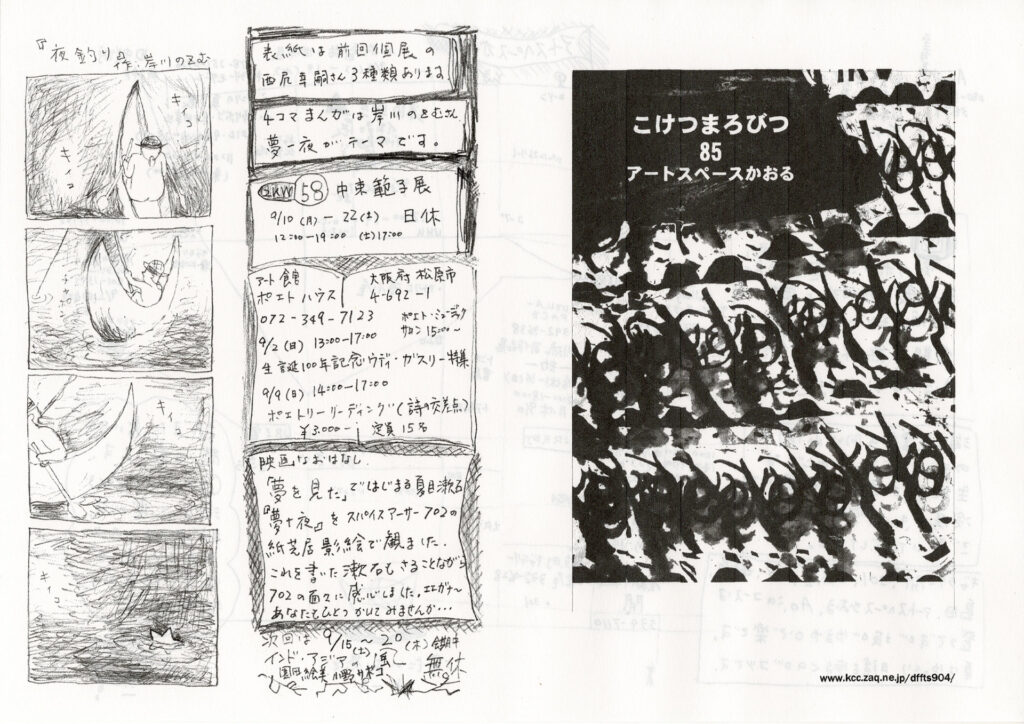 『夜釣り』
作・岸川のぞむ
キィ
コ
キィ
コ
キィ
コ
キィ
表紙は前回個展の
西尾幸嗣さん3種類あります
4コマまんがは岸川のぞむさん
夢一夜がテーマです。
2KW 58 中束範子展
9/10(月)-22(土) 日休
12:00-19:00 (土)17:00
アート館
ポエトハウス
大阪府松原市
4-692-1
072-349-7123
ポエト・ミュージック
サロン 15:00~
9/2(日) 13:00-17:00
生誕100年記念ウディ・ガスリー特集
9/9(日) 14:00-17:00
ポエトリーリーディング(詩の交差点)
¥3,000- 定員15名
映画なおはなし
「夢を見た」ではじまる夏目漱石
『夢十夜』をスパイスアーサー702の
紙芝居影絵で観ました。
これを書いた漱石もさることながら
702の面々に感心しました。エヘガナ~
あなたもひとつかしてみませんか…
次回は9/15(土)~20(木)会期中
無休
インド・アジアの風
園田絵美
こけつまろびつ
85
アートスペースかおる
www.kcc.zaq.ne.jp/dffts904/